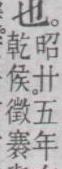 也。
昭廿五年
乾侯。徵褰